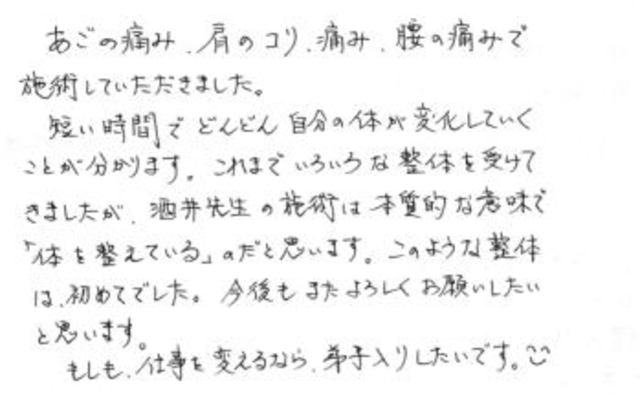 あごの痛み、肩のコリ、痛み、腰の痛みで
施術していただきました。
短い時間でどんどん自分の体が変化していく
ことが分かります。これまでいろいろな整体を受けて
きましたが、酒井先生の施術は本質的な意味で
「体を整えている」のだと思います。このような整体
は、初めてでした。今後もまたよろしくお願いしたい
と思います。
もしも、仕事を変えるなら、弟子入りしたいです。